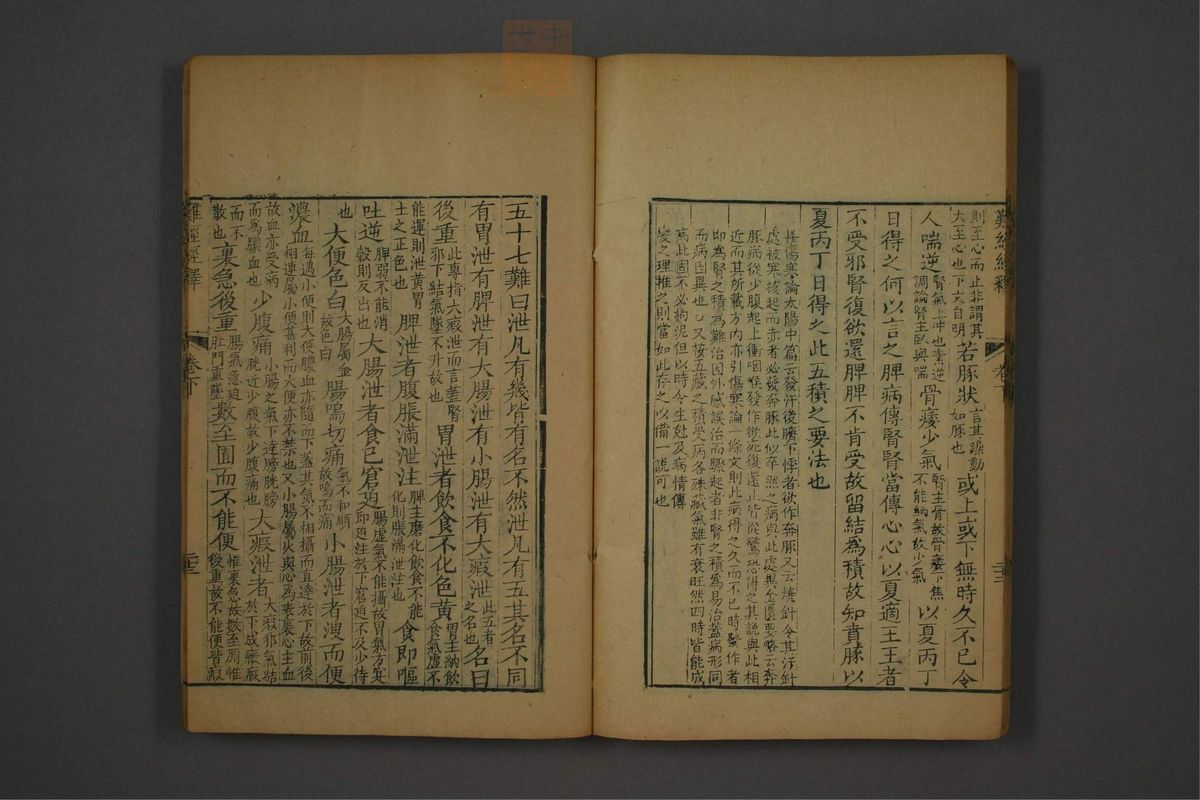 難經經釋 卷下
則至心而止非謂其大至心也下文自明若豚狀言其躁動如豚也或上或下無時久不已令
人喘逆腎氣上沖也素逆調論腎主臥與喘骨痿少氣腎主骨故骨痿下焦不能納氣故少氣以夏丙丁
日得之何以言之脾病傳腎腎當傳心心以夏適王王者
不受邪腎復欲還脾脾不肯受故留結爲積故知賁豚以
夏丙丁日得之此五積之要法也
按傷寒論太陽中篇云發汗後臍下悸者欲作奔豚又云燒針令其汗針
處被寒核起而赤者必發奔豚此似卒然之病與此處異金匱要略云奔
豚病從少腹起上衝咽喉發作欲死復還止皆從驚恐得之其說與此相
近而其所載方內亦引傷寒論一條文則此病得之久而不已時發作者
即爲腎之積爲難治因外感誤治而驟起者非腎之積爲易治蓋病形同
而病因異也又按五藏之積受病各殊藏氣雖有衰旺然四時皆能成
病此固不必拘泥但以時令生尅及病情傳
變之理推之則當如此存之以備一說可也
五十七難曰泄凡有幾皆有名不然泄凡有五其名不同
有胃泄有脾泄有大腸泄有小腸泄有大瘕泄此五者之名也名曰
後重此專指大瘕泄而言蓋腎邪下結氣墜不升故也胃泄者飲食不化色黃胃主納飲食胃虛不
能運則泄黃胃土之正色也脾泄者腹脹滿泄注脾主磨化飲食不能化則脹滿泄注也食即嘔
吐逆脾弱不能消穀則反出也大腸泄者食已窘迫腸虛氣不能攝故胃氣方實即迫注於下窘迫不及少待
也大便色白大腸屬金故色白腸鳴切痛氣不和順故鳴而痛小腸泄者溲而便
膿血每遇小便則大便膿血亦隨而下蓋其氣不相攝而直達於下故前後相連屬小便甚利而大便亦不禁也又小腸屬火與心爲表裏心主血
故血亦受病而爲膿血也少腹痛小腸之氣下達膀胱膀胱近少腹故少腹痛也大瘕泄者大瘕邪氣結於下成癥瘕
而不散也裏急後重腸氣急迫肛門重墜數至圊而不能便惟裏急故數至厠惟後重故不能便皆瘕
難經經釋 卷下 二十三